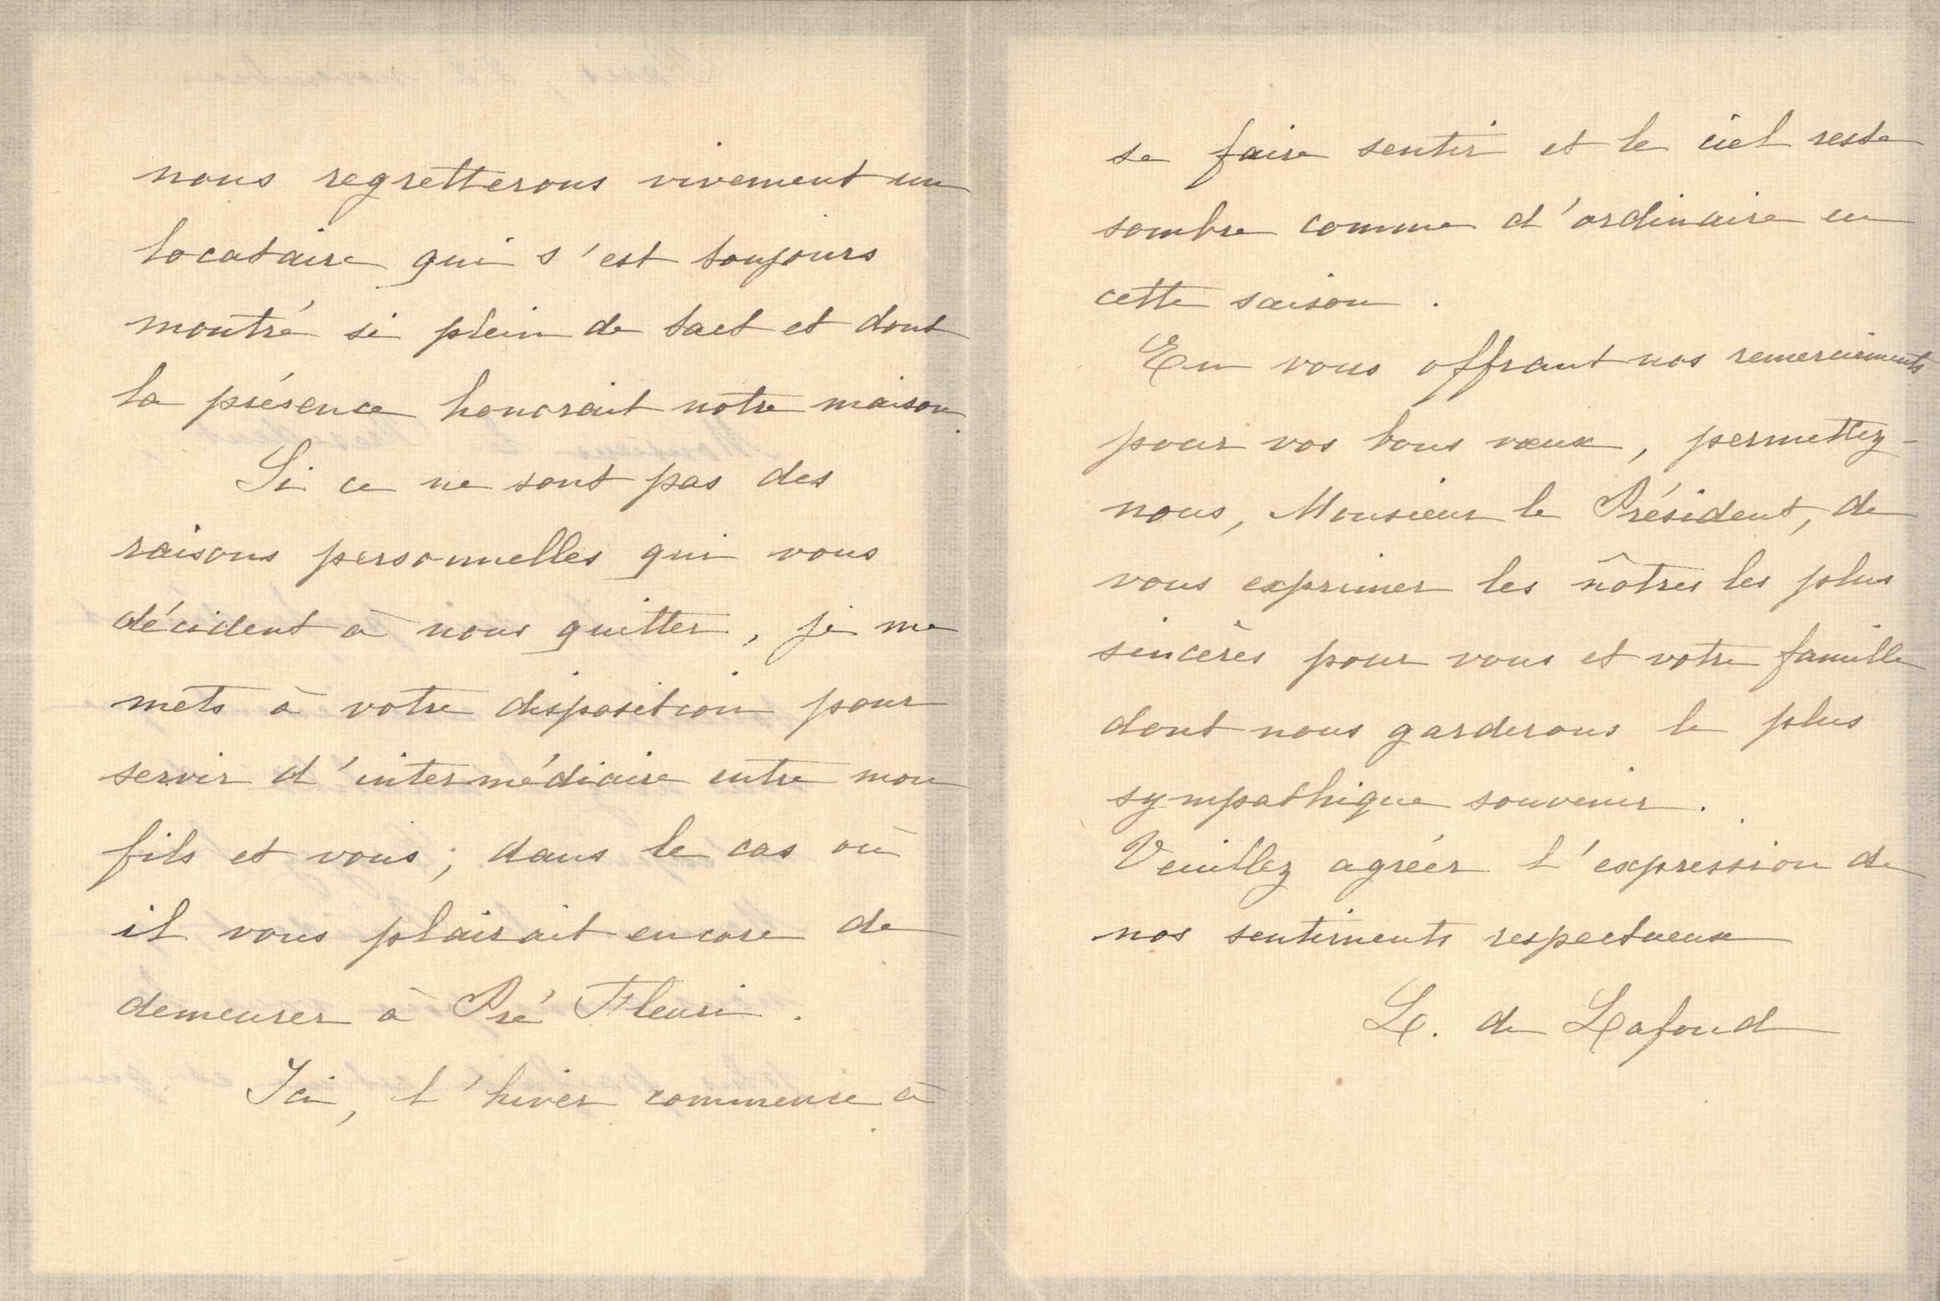 nous regretterons vivement un
locataire qui s'est toujours
montré si plein de tact et dont
la présence honorait notre maison.
Si ce ne sont pas des
raisons personnelles qui vous
décident à nous quitter, je me
mets à votre disposition pour
servir d'intermédiaire entre mon
fils et vous; dans le cas où
il vous plairait encore de
demeurer à Pré Fleuri.
Ici, l'hiver commence à
se faire sentir et le ciel reste
sombre comme d'ordinaire en
cette saison.
En vous offrant nos remerciements
pour vos bons vœux, permettez-
nous, Monsieur le Président, de
vous exprimer les nôtres les plus
sincères pour vous et votre famille
dont nous garderons le plus
sympathique souvenir.
Veuillez agréer l'expression de
nos sentiments respectueux
L. de Lafond